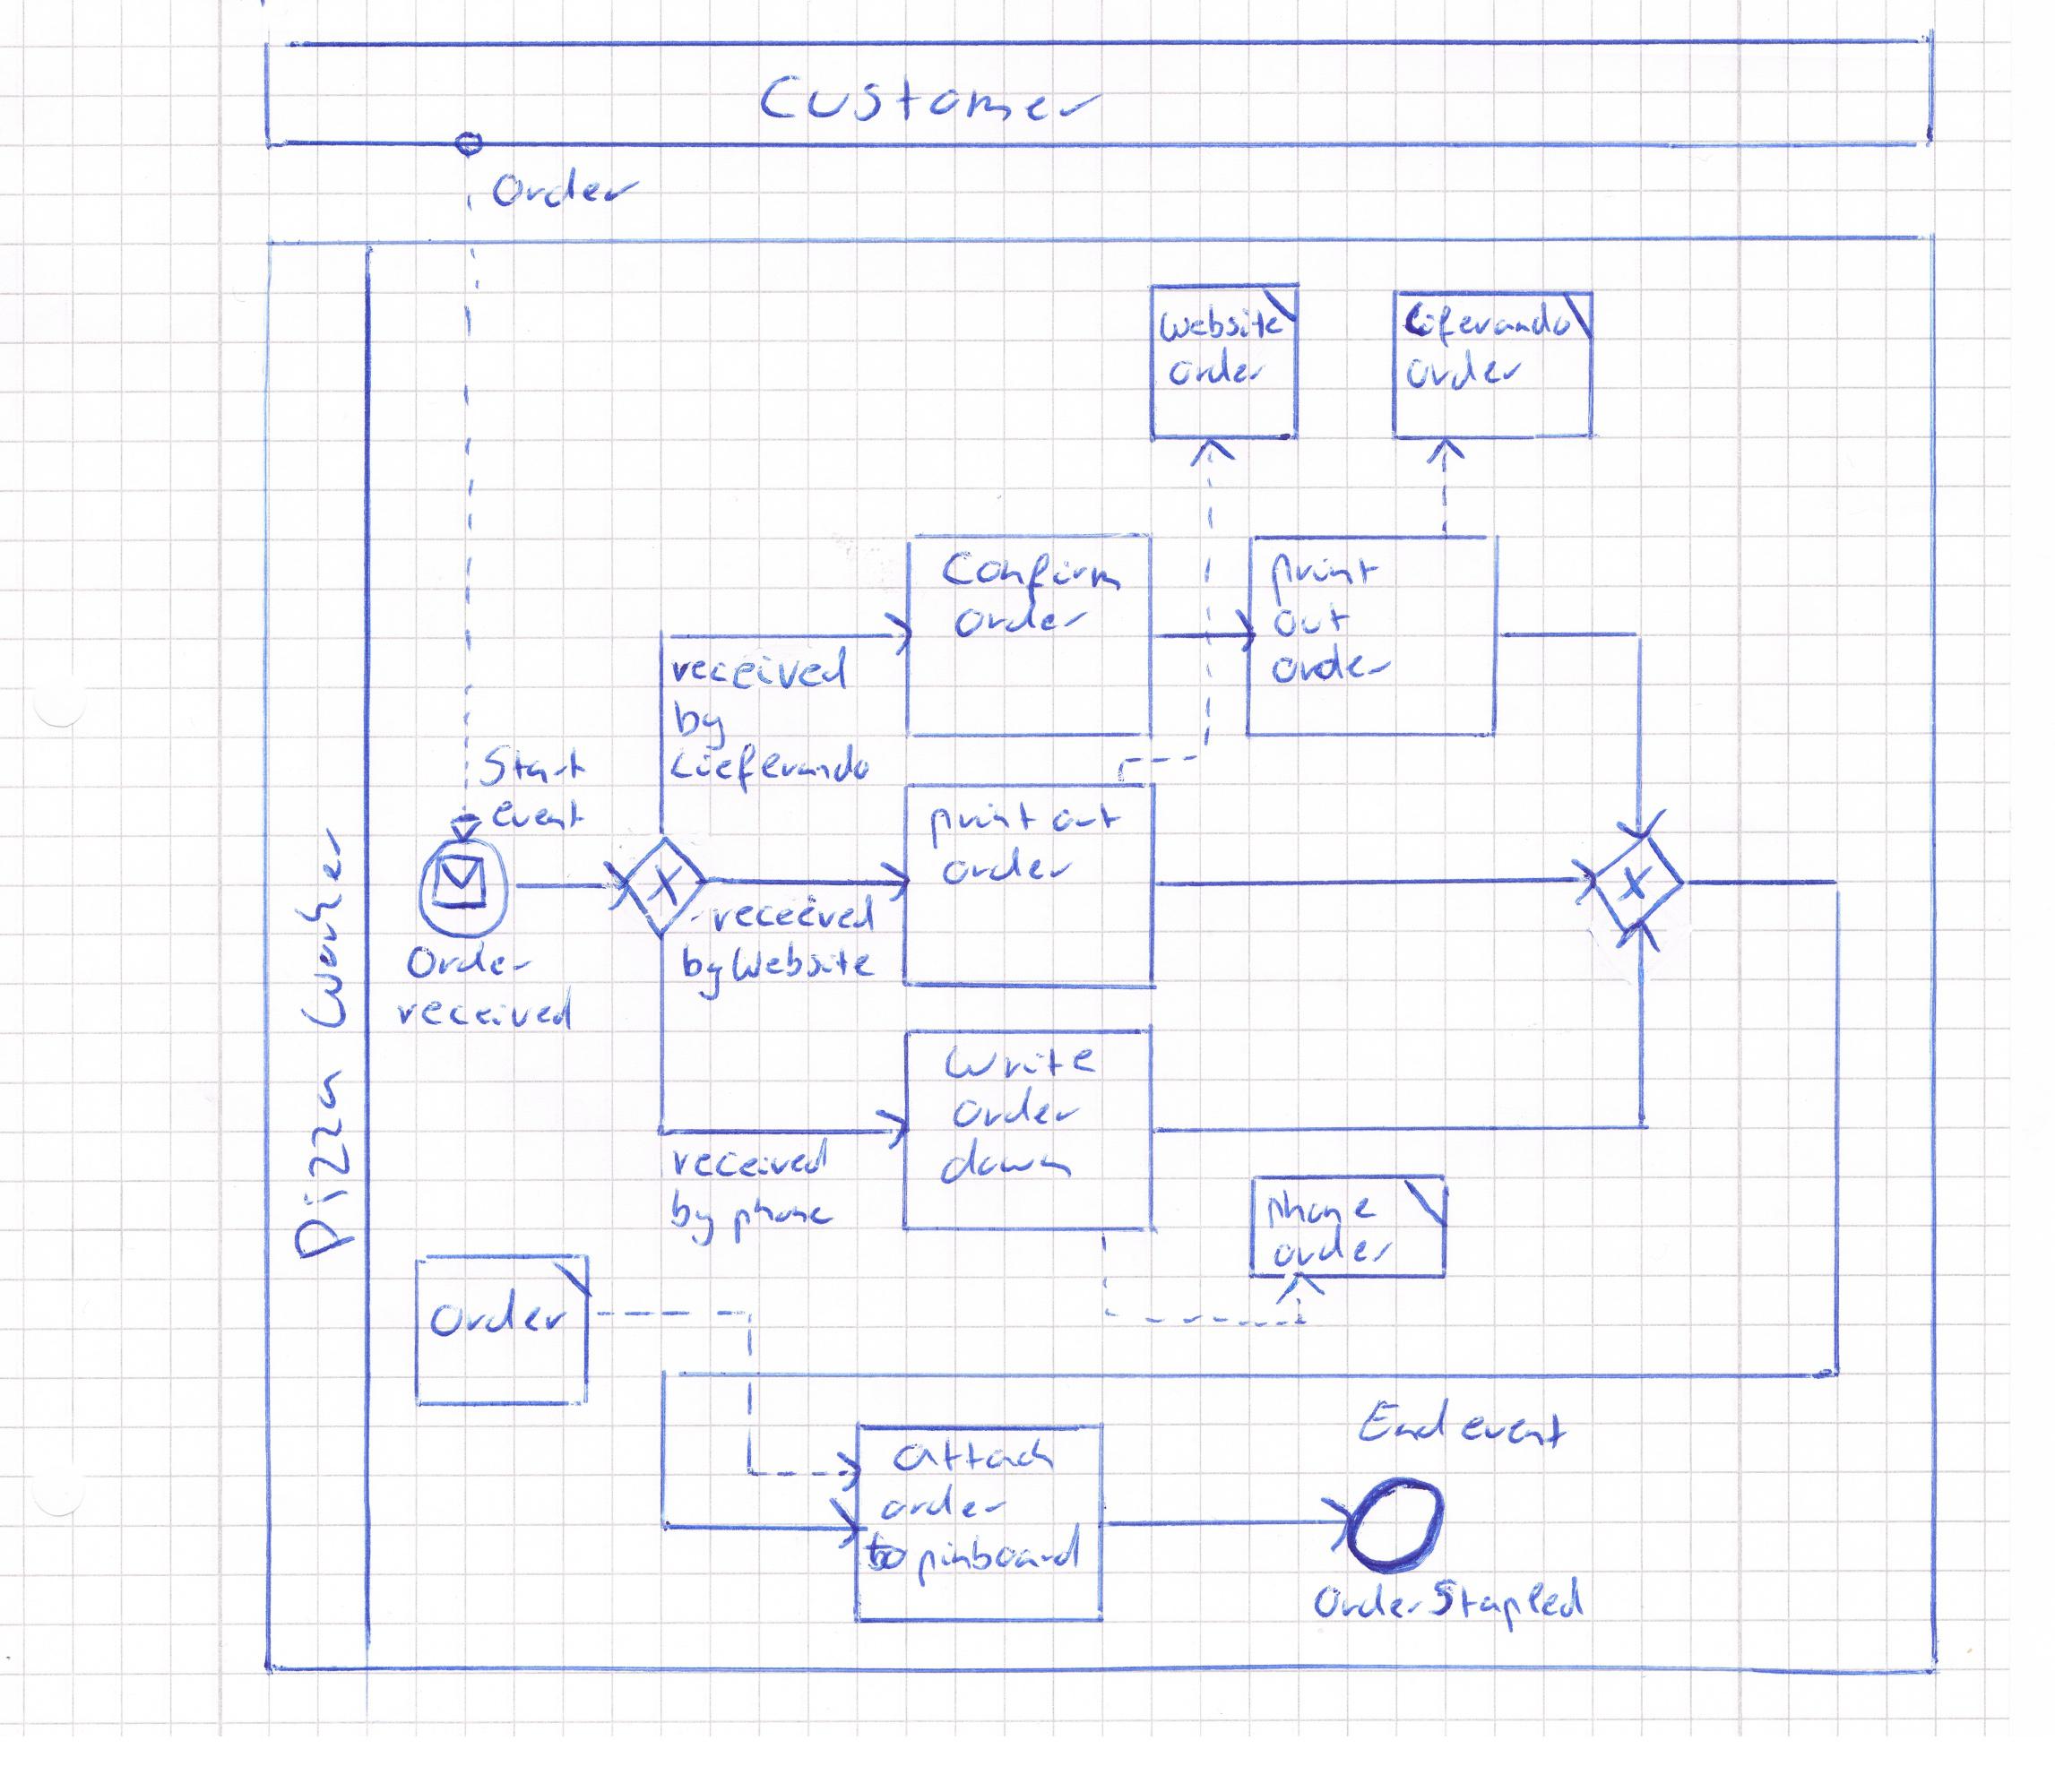 Customer
Order
Pizza Worker
Website
order
order
Confirm
order
print
out
order
received
by
Lieferando
Start
event
print out
order
X
X
receeved
by Website
Order
received
Write
order
down
received
by phone
phone
order
Order
End event
attach
order
to pinboard
Order Stapled